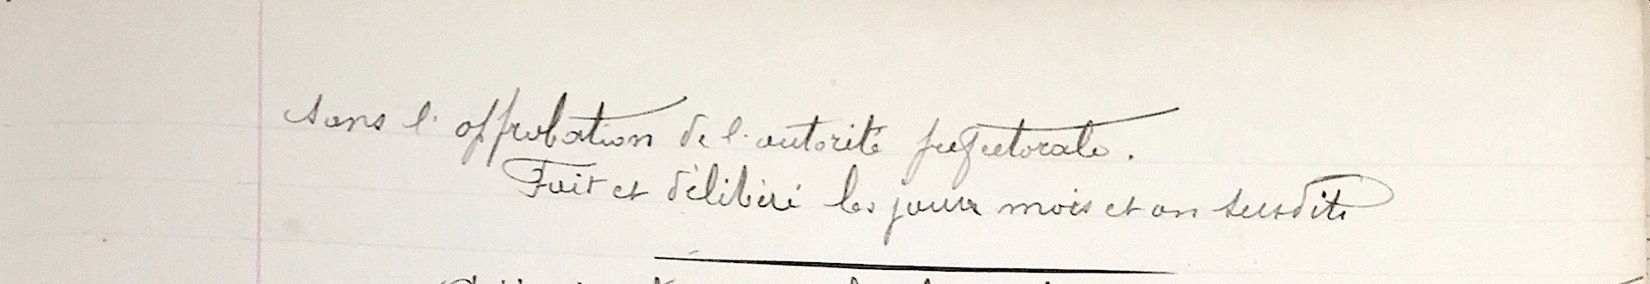 sans l'approbation de l'autorité préfectorale.
Fait et délibéré les jour mois et an susdits